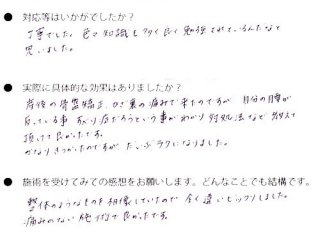 ● 対応等はいかがでしたか？
丁寧でした。色々知識も多く良く勉強されているんだなと
思いました。
● 実際に具体的な効果はありましたか？
産後の骨盤矯正、ひざ裏の痛みで来たのですが 自分の腰が
反っている事 反り症だろうという事がわかり 対処法など 教えて
頂けて良かったです。
かなりきつかったのですが だいぶラクになりました。
● 施術を受けてみての感想をお願いします。どんなことでも結構です。
整体のようなものを想像していたので 全く違いビックリしました。
痛みのない施術で良かったです。